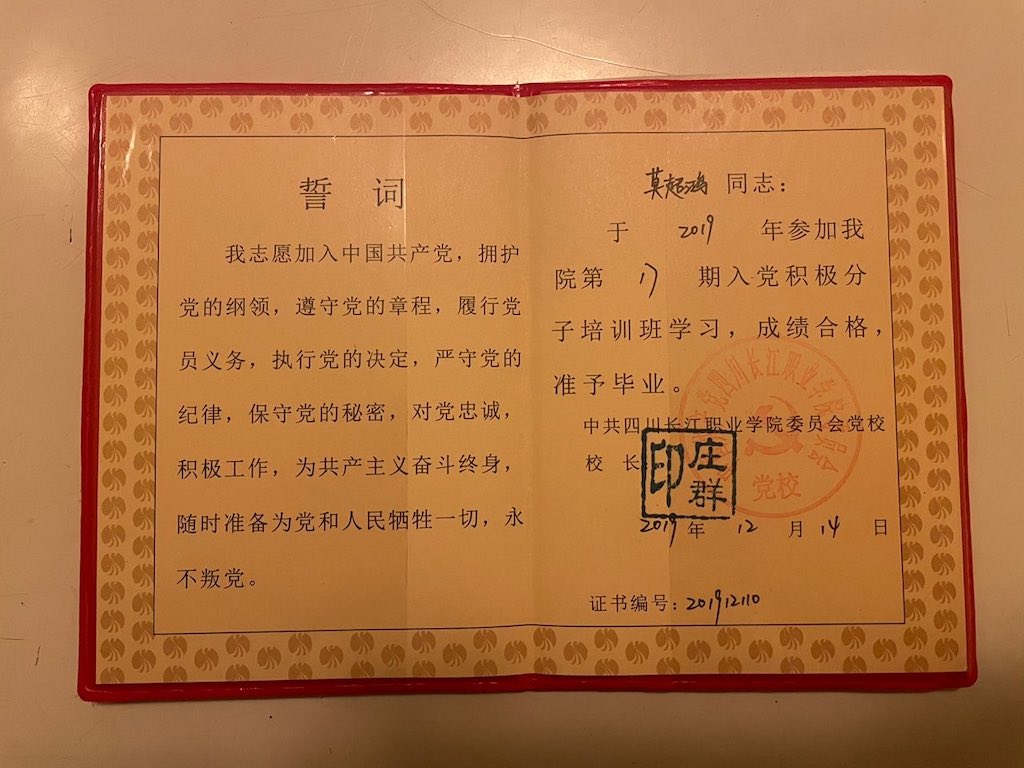 誓词
我志愿加入中国共产党，拥护
党的纲领，遵守党的章程，履行党
员义务，执行党的决定，严守党的
纪律，保守党的秘密，对党忠诚，
积极工作，为共产主义奋斗终身，
随时准备为党和人民牺牲一切，永
不叛党。
莫超鸿 同志：
于 2019 年参加我
院第 17 期入党积极分
子培训班学习，成绩合格，
准予毕业。
中共四川长江职业学院委员会党校
校 长
庄群印
党校
2019 年 12 月 14 日
证书编号：201912110